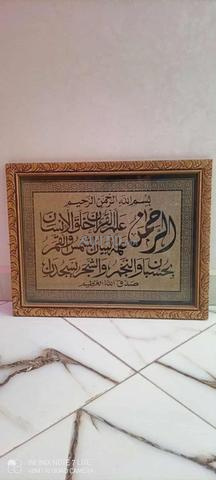 بسم الله الرحمن الرحيم
الرحمن علم القرآن خلق الإنسان
علمه البيان الشمس والقمر
بحسبان والنجم والشجر يسجدان
صدق الله العظيم
INFINIX NOTE 7 LITE
48MP AI QUAD CAMERA